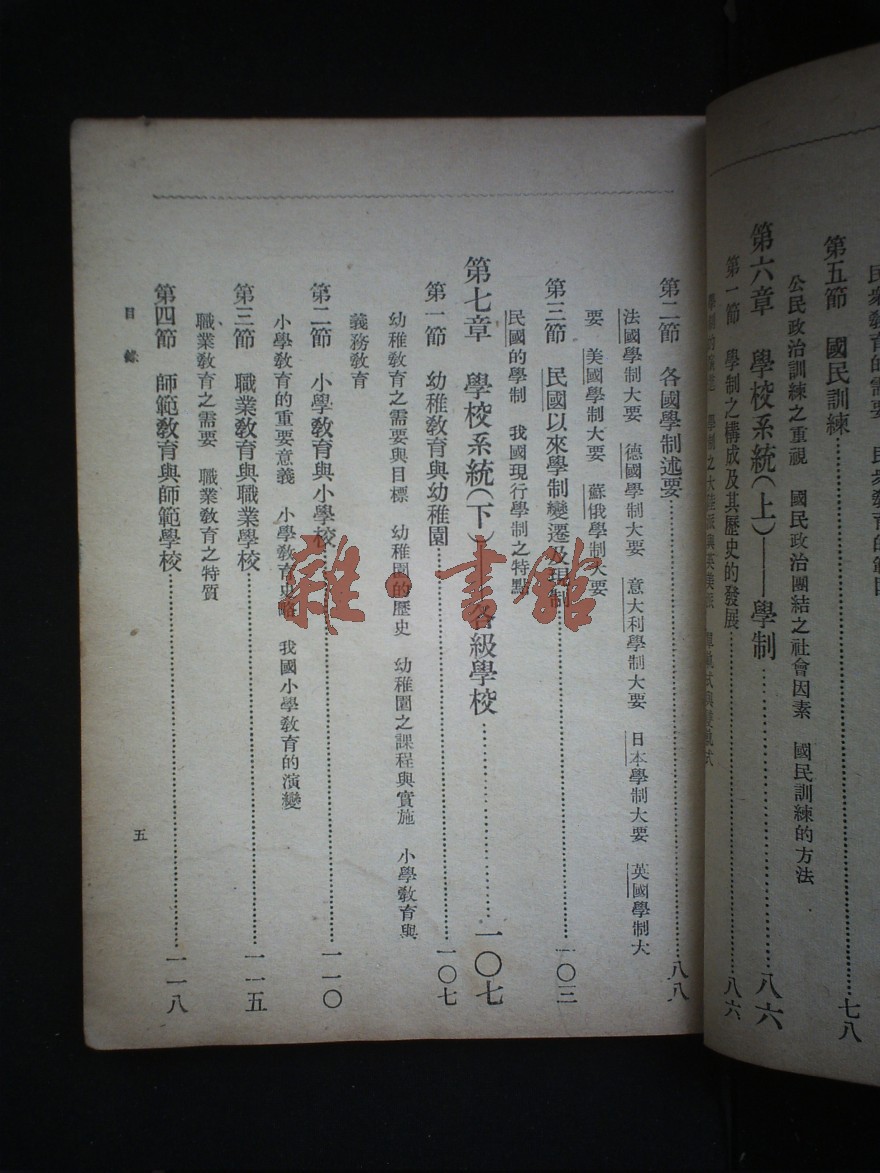 第五節　國民訓練……七八
公民政治訓練之重視　國民政治團結之社會因素　國民訓練的方法
第六章　學校系統(上)——學制……八六
第一節　學制之構成及其歷史的發展……八六
第二節　各國學制述要……八八
法國學制大要　德國學制大要　意大利學制大要　日本學制大要　英國學制大
要　美國學制大要　蘇俄學制大要
第三節　民國以來學制變遷及現制……一〇三
民國的學制　我國現行學制之特點
第七章　學校系統(下)——各級學校……一〇七
第一節　幼稚教育與幼稚園……一〇七
幼稚教育之需要與目標　幼稚園的歷史　幼稚園之課程與實施　小學教育與
義務教育
第二節　小學教育與小學校……一一〇
小學教育的重要意義　小學教育史略　我國小學教育的演變
第三節　職業教育與職業學校……一一五
職業教育之需要　職業教育之特質
第四節　師範教育與師範學校……一一八
目錄
五
雜·書館